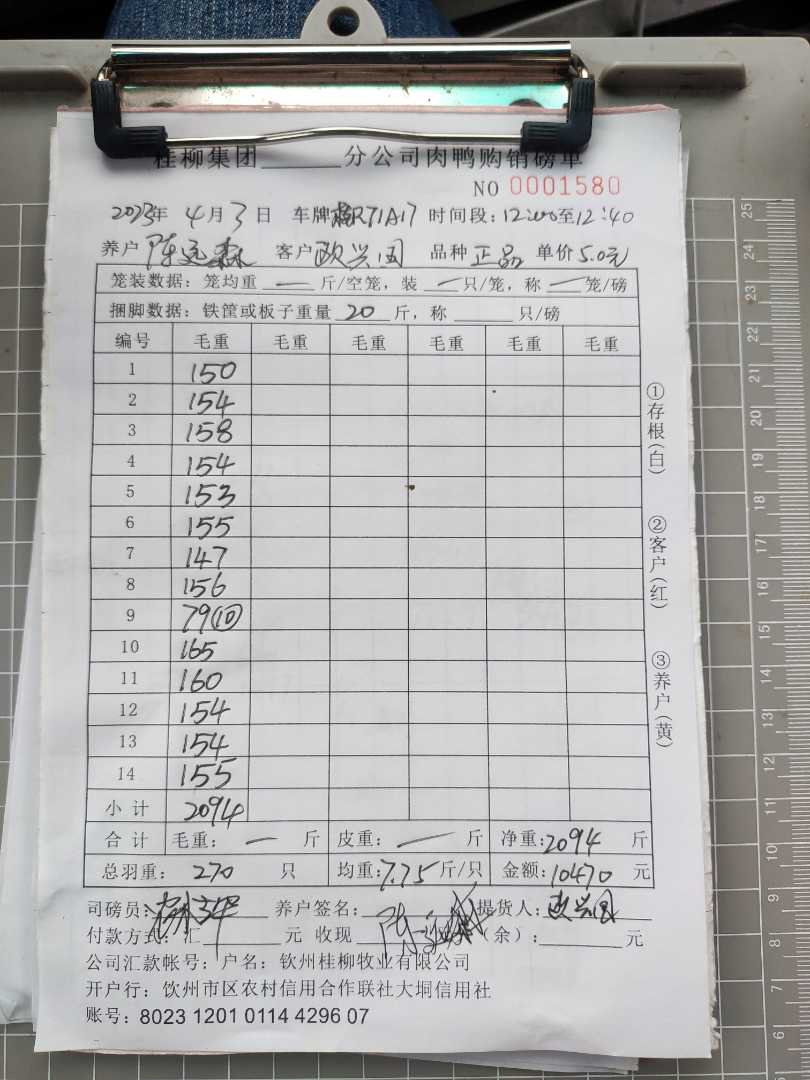 桂柳集团______分公司肉鸭购销磅单
NO 0001580
2023年 4月3日 车牌 R71A17 时间段:12:00至12:40
养户 陈远森 客户 欧兴国 品种 正品 单价 5.0元
笼装数据:笼均重 — 斤/空笼,装 — 只/笼,称 — 笼/磅
捆脚数据:铁筐或板子重量 20 斤,称______只/磅
编号 毛重 毛重 毛重 毛重 毛重 毛重
1 150
2 154
3 158
4 154
5 153
6 155
7 147
8 156
9 79(10)
10 165
11 160
12 154
13 154
14 155
小计 2094
合计 毛重: — 斤 皮重: — 斤 净重:2094 斤
总羽重: 270 只 均重:7.75斤/只 金额:10470 元
司磅员: 养户签名: 提货人:欧兴国
付款方式:汇______元 收现 (余):______元
公司汇款帐号:户名:钦州桂柳牧业有限公司
开户行:饮州市区农村信用合作联社大垌信用社
账号:8023 1201 0114 4296 07
①存根(白)
②客户(红)
③养户(黄)
25
24
23
22
21
20
19
18
17
16
15
14
13
12
11
10
9
8
7
6
5